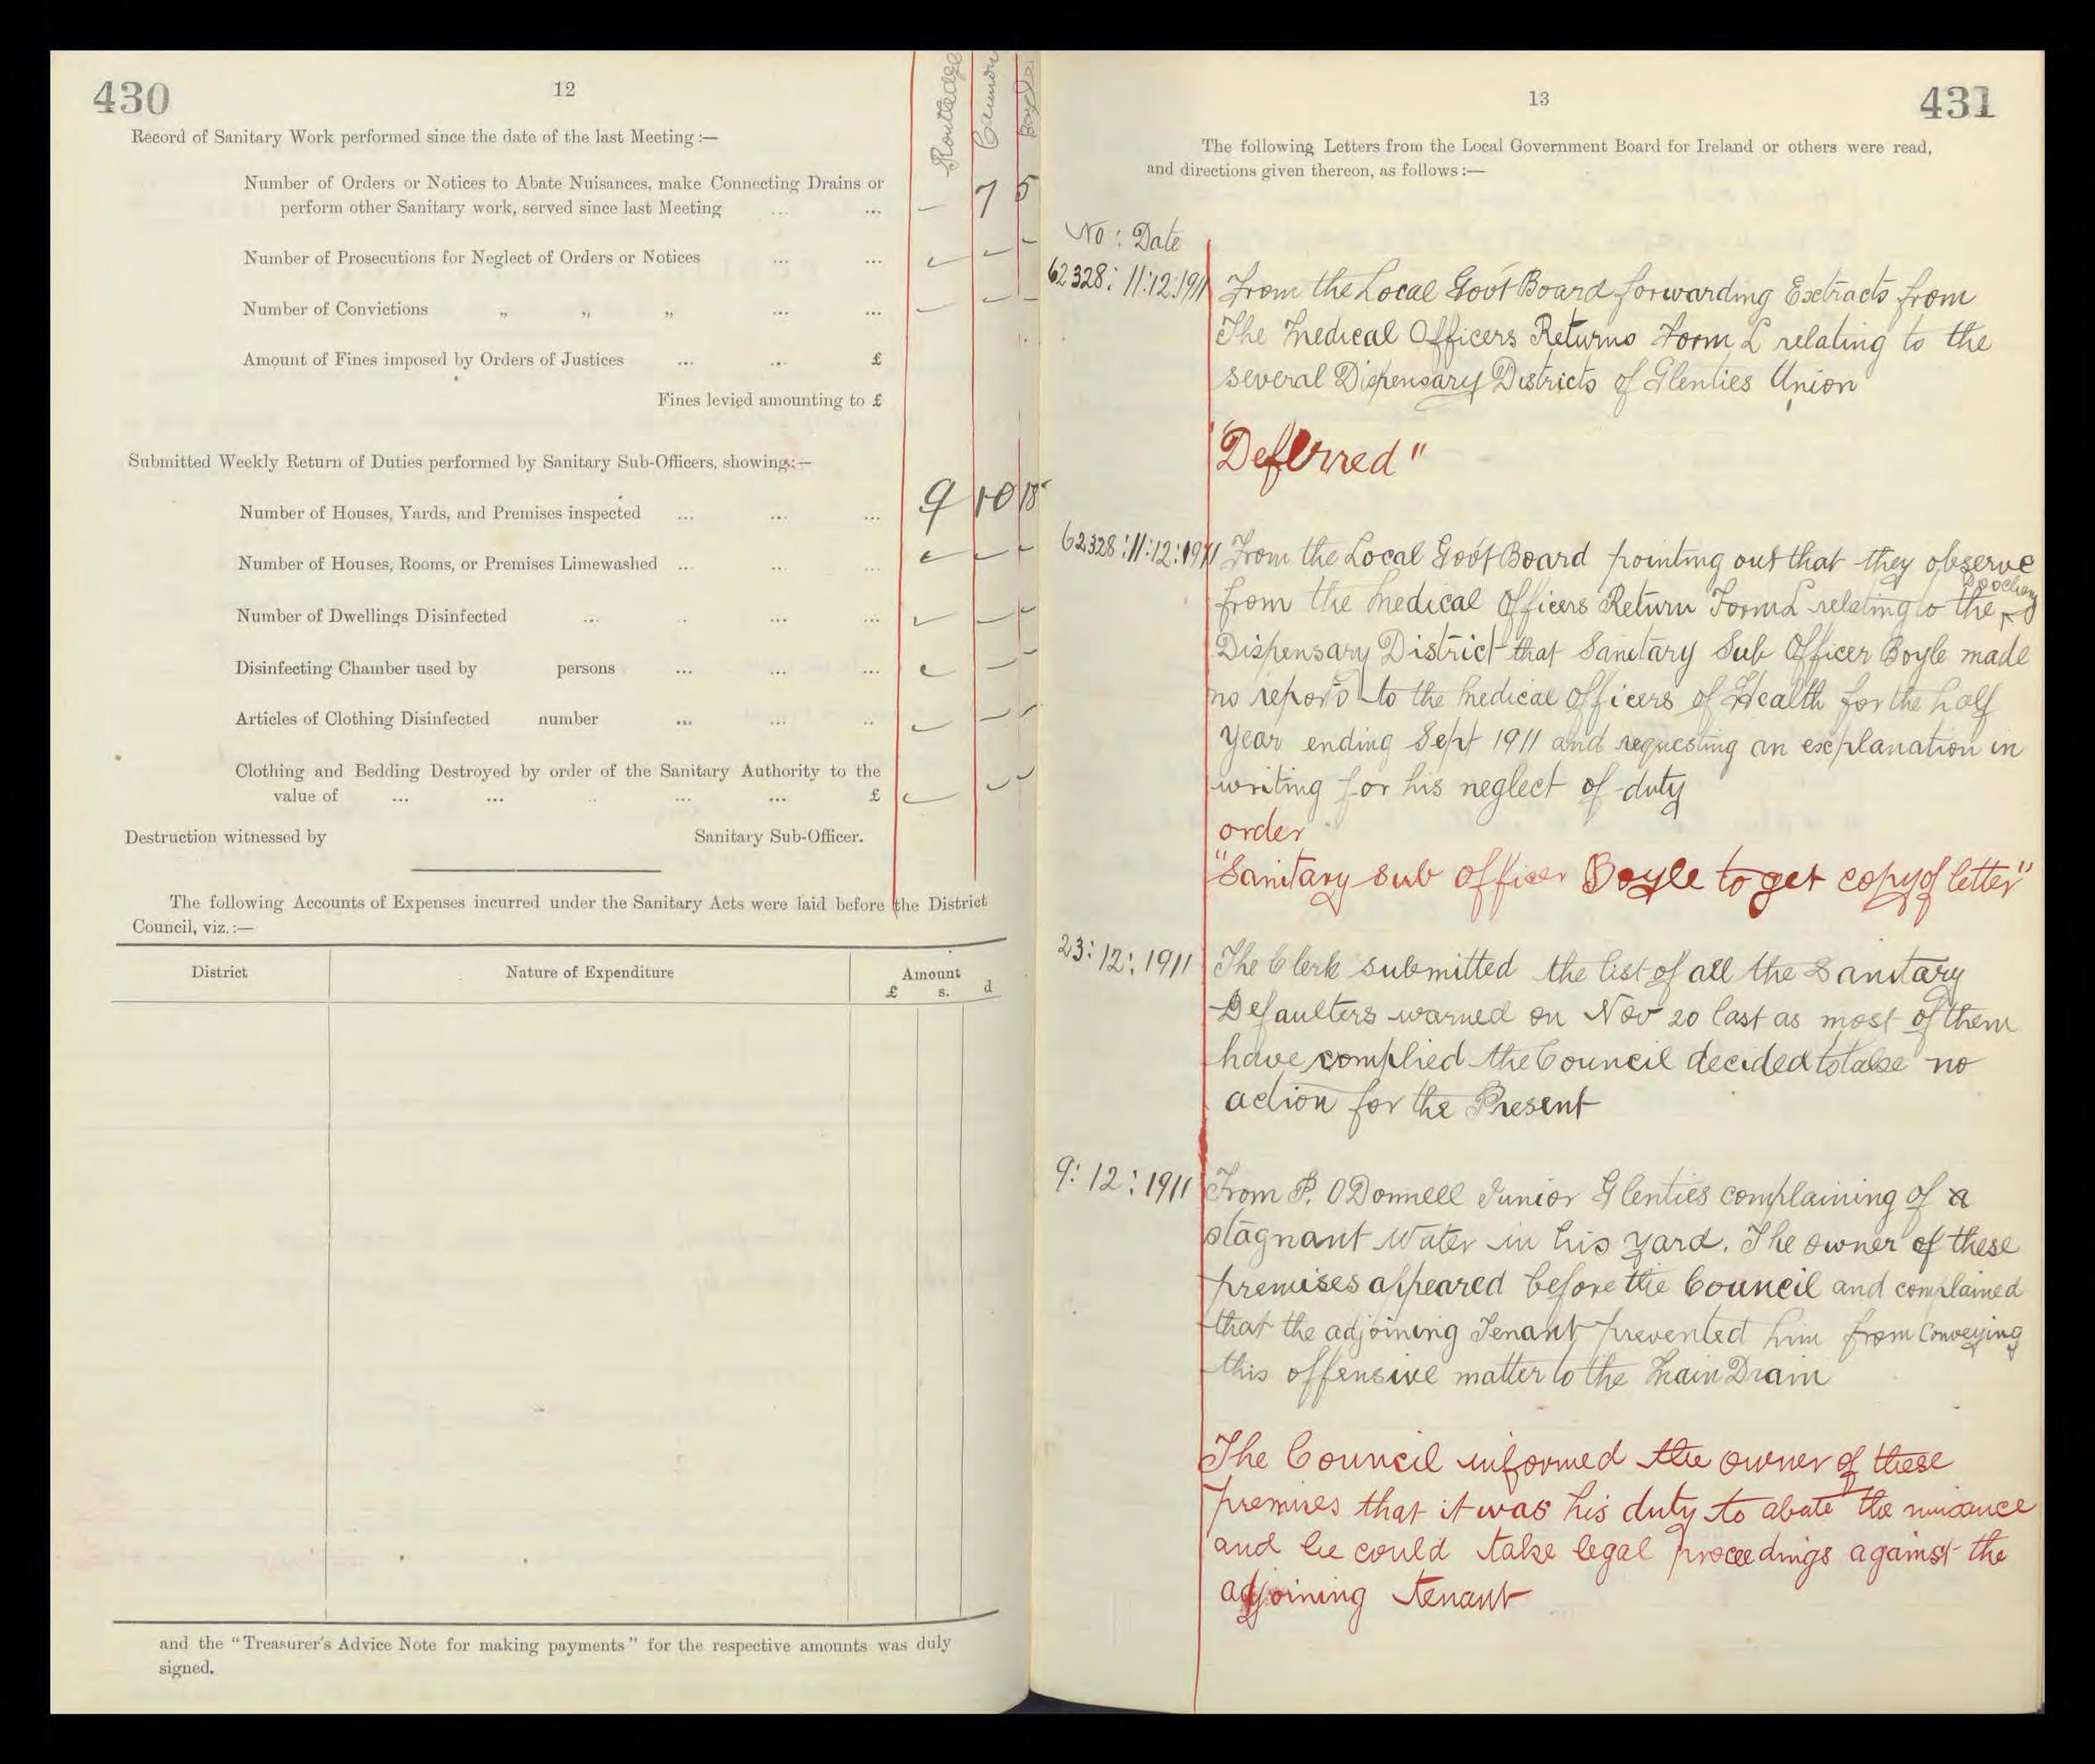 430
12
Routledge
Cannon
Boyle
Record of Sanitary Work performed since the date of the last Meeting :—
Number of Orders or Notices to Abate Nuisances, make Connecting Drains or
perform other Sanitary work, served since last Meeting ... ... — 7 5
Number of Prosecutions for Neglect of Orders or Notices ... ... — — —
Number of Convictions „ „ „ ... ... — — —
Amount of Fines imposed by Orders of Justices ... ... £
Fines levied amounting to £
Submitted Weekly Return of Duties performed by Sanitary Sub-Officers, showing:—
Number of Houses, Yards, and Premises inspected ... ... ... 9 10 18
Number of Houses, Rooms, or Premises Limewashed ... ... ... — — —
Number of Dwellings Disinfected ... .. ... ... — — —
Disinfecting Chamber used by persons ... ... ... — — —
Articles of Clothing Disinfected number ... ... .. — — —
Clothing and Bedding Destroyed by order of the Sanitary Authority to the
value of ... ... .. ... ... £ — — —
Destruction witnessed by Sanitary Sub-Officer.
The following Accounts of Expenses incurred under the Sanitary Acts were laid before the District
Council, viz. :—
District Nature of Expenditure Amount
£ s. d
and the "Treasurer's Advice Note for making payments" for the respective amounts was duly
signed.
13
431
The following Letters from the Local Government Board for Ireland or others were read,
and directions given thereon, as follows :—
No : Date
62328: 11:12:1911 From the Local Govt Board forwarding Extracts from
The Medical Officers Returns Form L relating to the
several Dispensary Districts of Glenties Union
"Deferred"
62328:11:12:1911 From the Local Govt Board pointing out that they observe
from the Medical Officers Return Form L relating to the Doochary
Dispensary District that Sanitary Sub Officer Boyle made
no reports to the Medical Officers of Health for the half
year ending Sept 1911 and requesting an explanation in
writing for his neglect of duty
order
"Sanitary sub officer Boyle to get copy of letter"
23:12:1911 The Clerk submitted the list of all the Sanitary
Defaulters warned on Nov 20 last as most of them
have complied the Council decided to take no
action for the Present
9:12:1911 From P. O Donnell Junior Glenties complaining of a
stagnant water in his yard. The owner of these
premises appeared before the Council and complained
that the adjoining Tenant prevented him from Conveying
this offensive matter to the Main Drain
The Council informed the owner of these
premises that it was his duty to abate the nuisance
and he could take legal proceedings against the
adjoining tenant